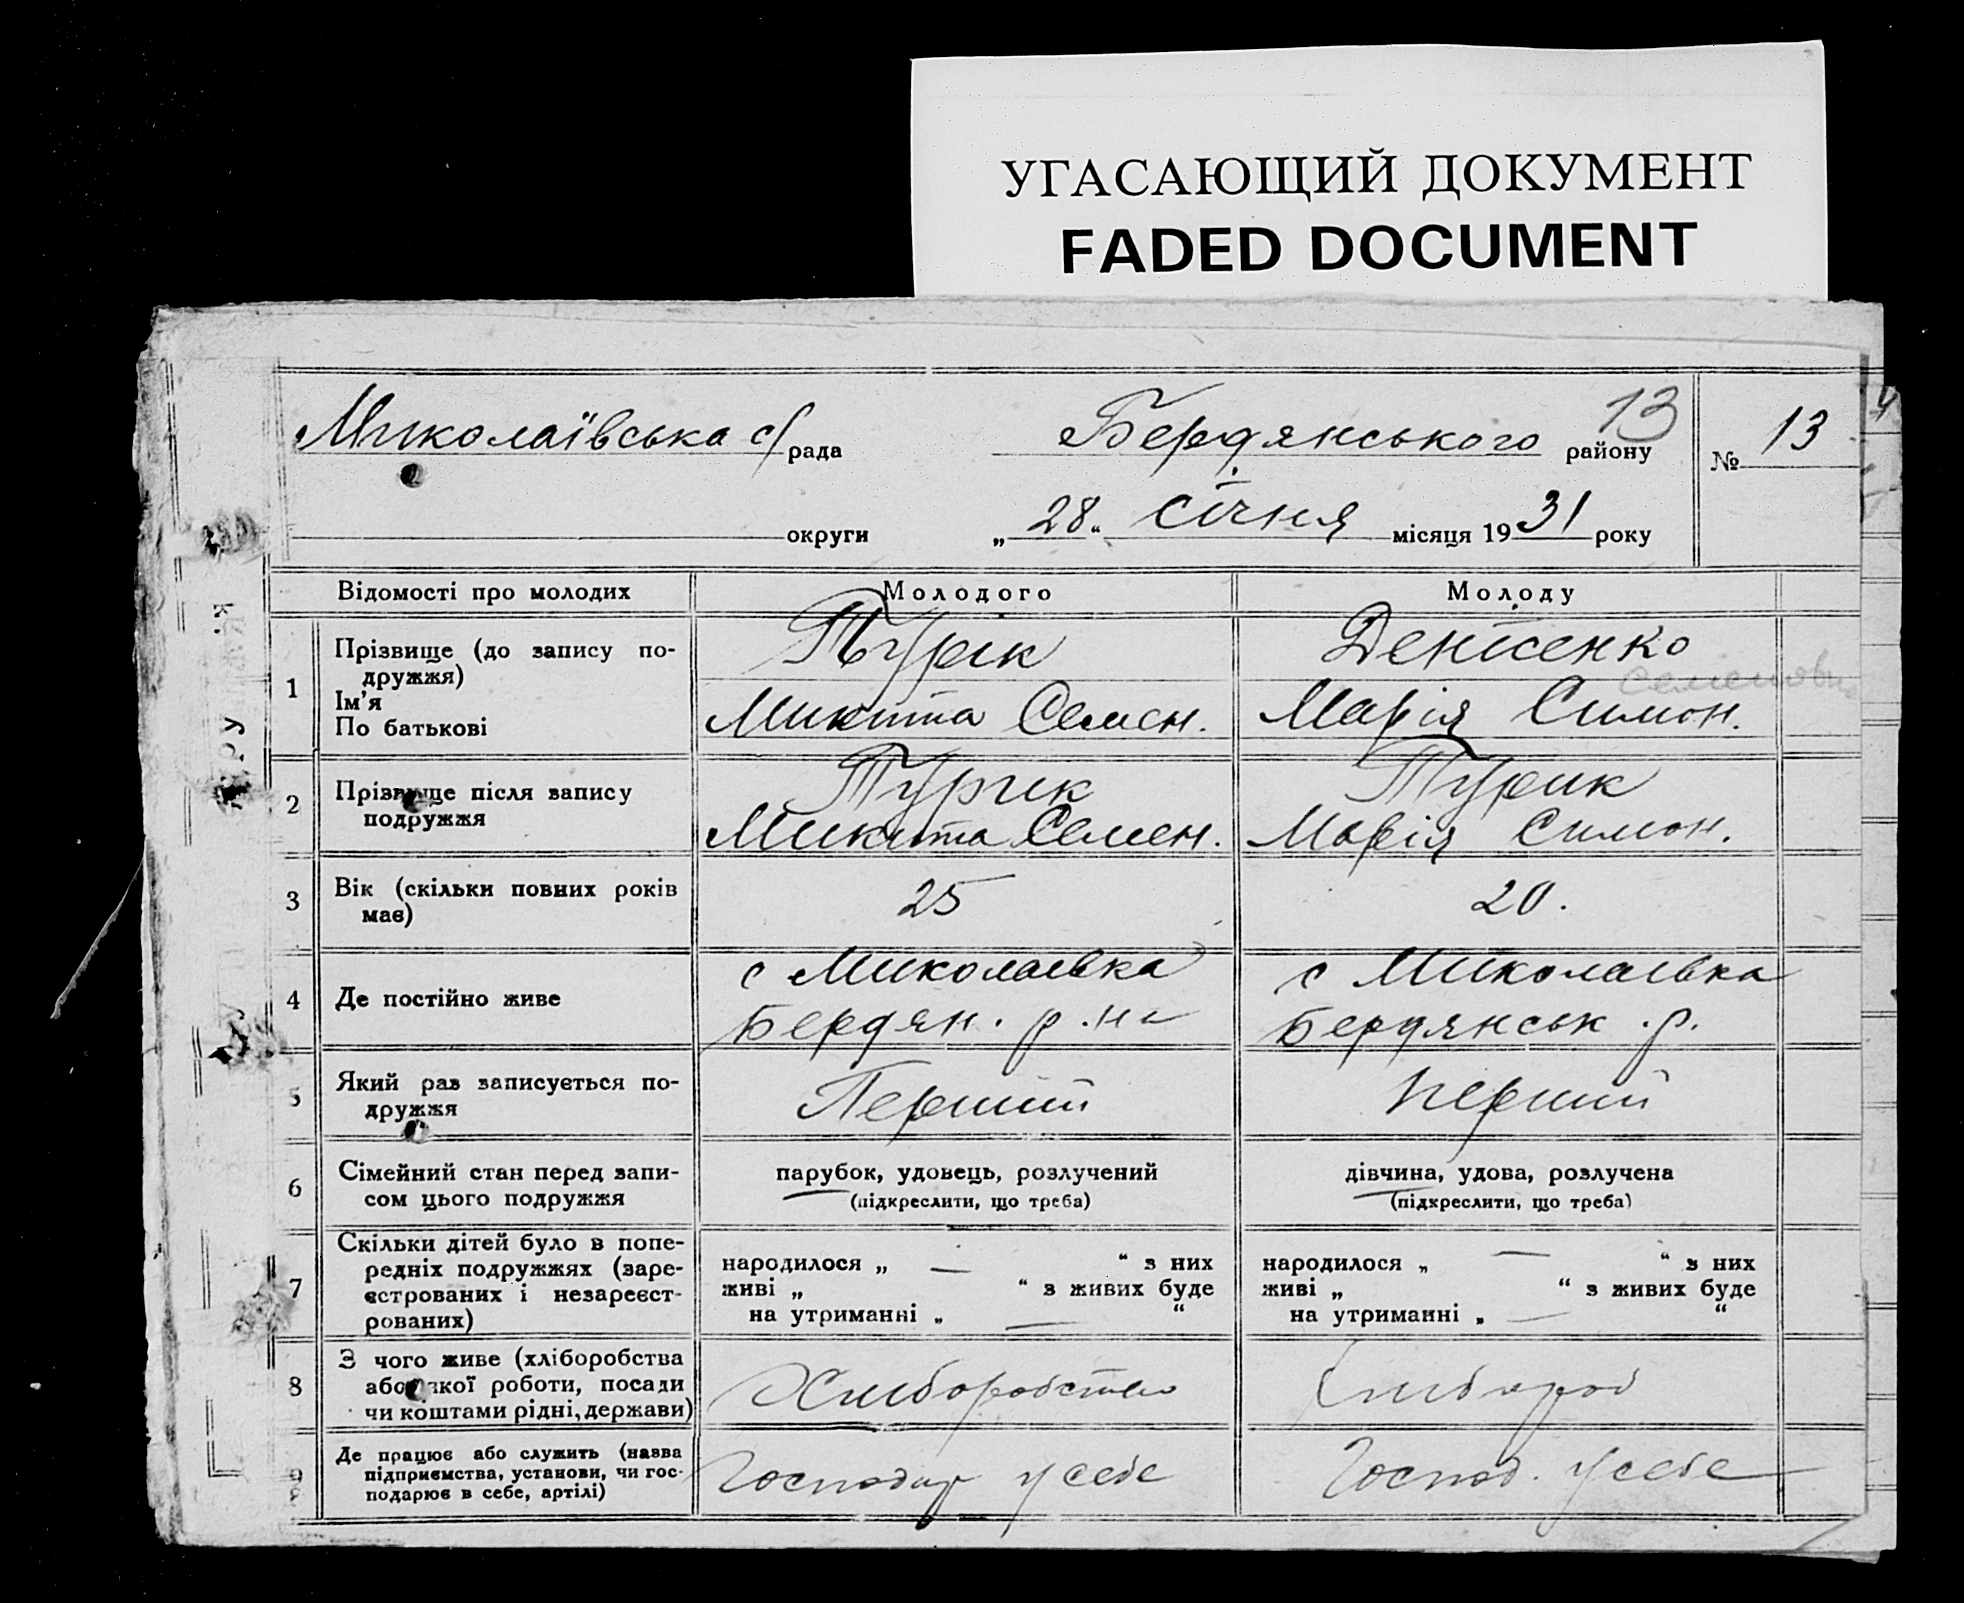 УГАСАЮЩИЙ ДОКУМЕНТ
FADED DOCUMENT
Миколаївська с/рада Бердянського району 13 № 13
округи „28“ січня місяця 1931 року
Відомості про молодих Молодого Молоду
1 Прізвище (до запису подружжя) Турік Денісенко
Ім'я Семеновна
По батькові Микита Семен. Марія Симон.
2 Прізвище після запису Турик Турик
подружжя Микита Семен. Марія Симон.
3 Вік (скільки повних років 25 20.
має)
4 Де постійно живе с Миколаевка с Миколаевка
Бердян. р.на Бердянськ.р.
5 Який раз записується по- Перший перший
дружжя
6 Сімейний стан перед запи- парубок, удовець, розлучений дівчина, удова, розлучена
сом цього подружжя (підкреслити, що треба) (підкреслити, що треба)
7 Скільки дітей було в попе-
редніх подружжях (заре- народилося „ — “ з них народилося „ — “ з них
єстрованих і незареєст- живі „ “ з живих буде живі „ “ з живих буде
рованих) на утриманні „ — “ на утриманні „ — “
8 З чого живе (хліборобства
або якої роботи, посади Хлиборобство Хлибороб
чи коштами рідні, держави)
9 Де працює або служить (назва
підприємства, установи, чи гос- Господар у себе Господ. у себе
подарює в себе, артілі)